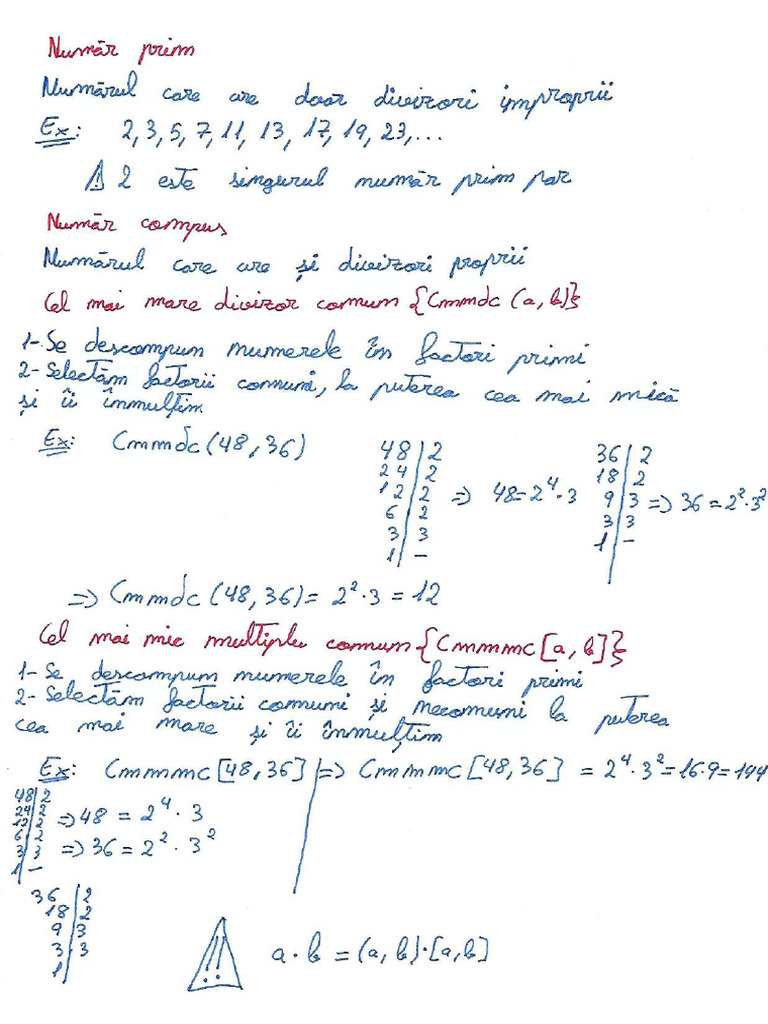 Număr prim
Numărul care are doar divizori improprii
Ex: 2, 3, 5, 7, 11, 13, 17, 19, 23, ...
! 2 este singurul număr prim par
Număr compus
Numărul care are și divizori proprii
Cel mai mare divizor comun {Cmmdc (a, b)}
1-Se descompun numerele în factori primi
2-Selectăm factorii comuni, la puterea cea mai mică
și îi înmulțim
Ex: Cmmdc(48, 36)
48|2
24|2
12|2
6|2
3|3
1|-
=> 48=2⁴·3
36|2
18|2
9|3
3|3
1|-
=> 36=2²·3²
=> Cmmdc(48, 36)= 2²·3 = 12
Cel mai mic multiplu comun {Cmmmc[a, b]}
1-Se descompun numerele în factori primi
2-Selectăm factorii comuni și necomuni la puterea
cea mai mare și îi înmulțim
Ex: Cmmmc[48, 36] => Cmmmc[48, 36] = 2⁴·3²=16·9=144
48|2
24|2
12|2
6|2
3|3
1|-
=> 48 = 2⁴·3
=> 36 = 2²·3²
36|2
18|2
9|3
3|3
1|
!!! a·b = (a, b)·[a, b]